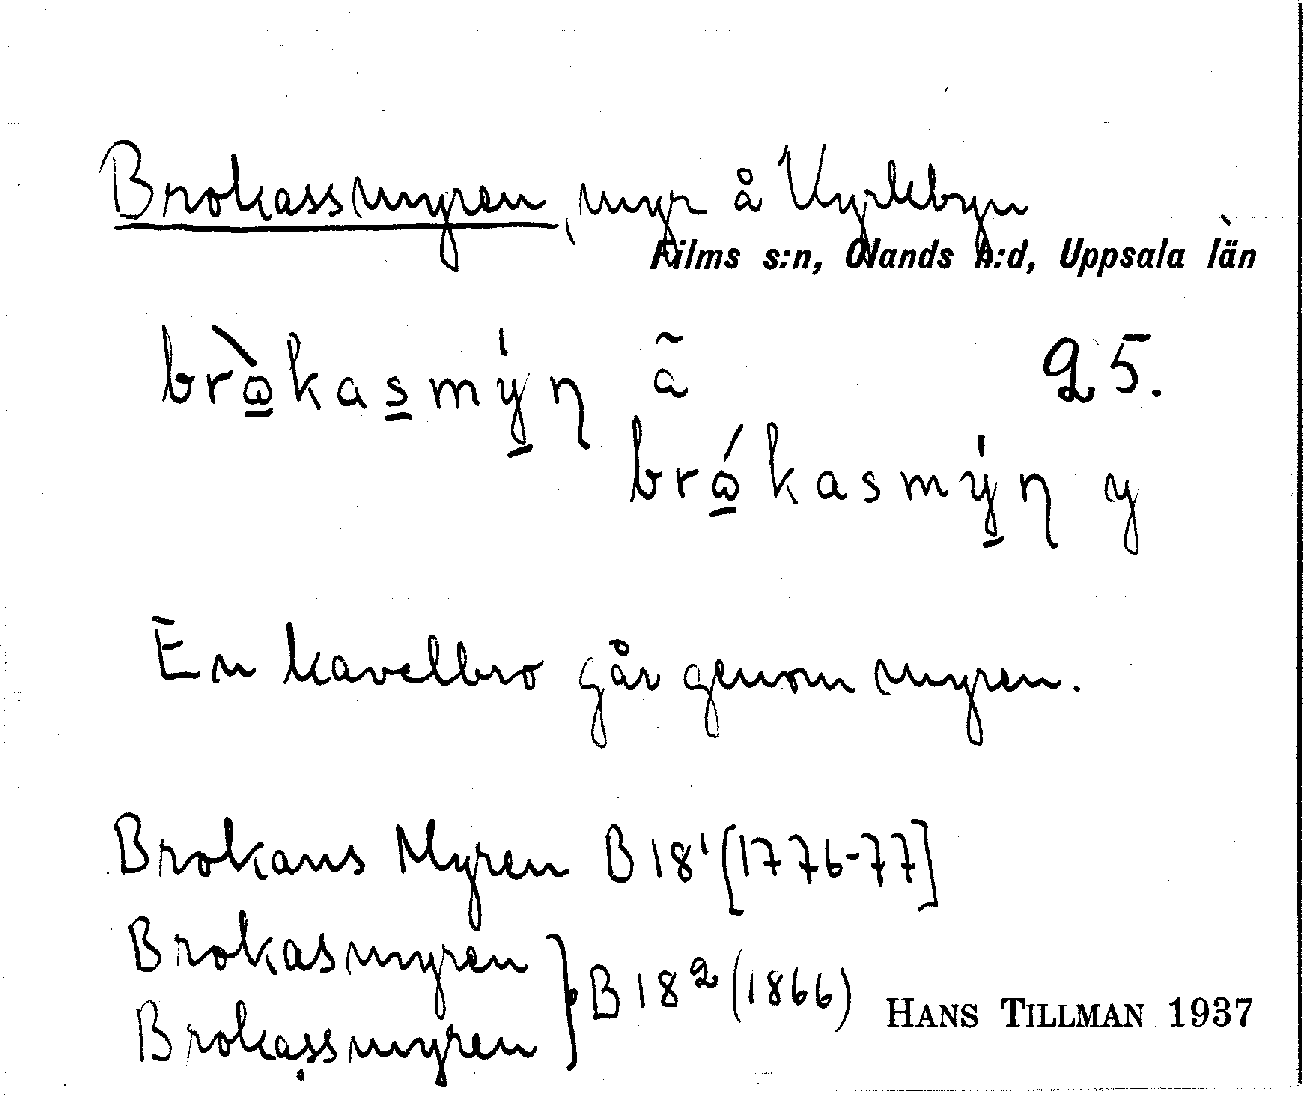 Brokassmyren, myr å Kyrkbyn
Films s:n, Olands h:d, Uppsala län
brὼ̲kas̲mý̲ņ ã 25.
brώ̲kasmý̲ņ y
En kavelbro går genom myren.
Brokans Myren B 18¹ [1776-77]
Brokasmyren
Brokasṣmyren } B 18² (1866)
HANS TILLMAN 1937